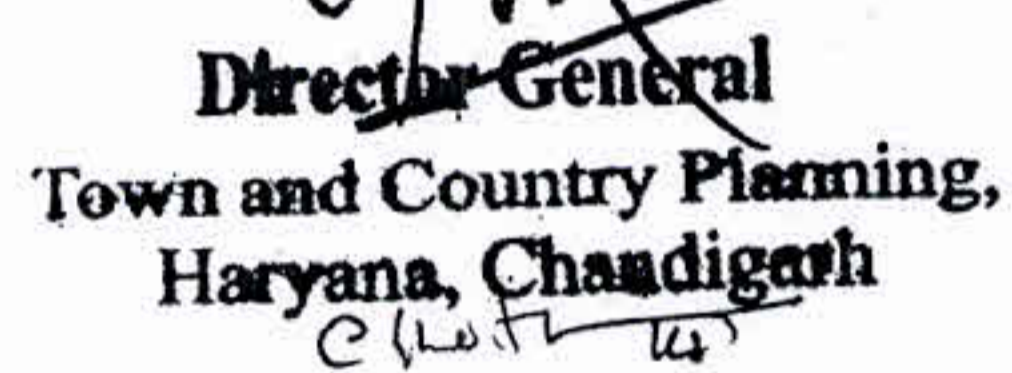 Director General
Town and Country Planning,
Haryana, Chandigarh